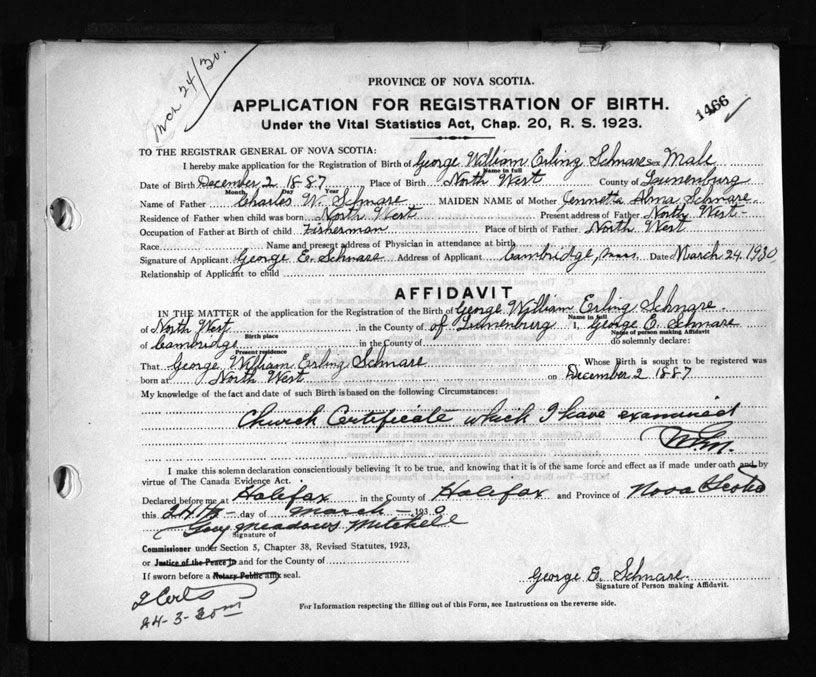 Mch 24/30.
PROVINCE OF NOVA SCOTIA.
APPLICATION FOR REGISTRATION OF BIRTH.
1466 ✓
Under the Vital Statistics Act, Chap. 20, R. S. 1923.
TO THE REGISTRAR GENERAL OF NOVA SCOTIA:
I hereby make application for the Registration of Birth of George William Erling Schnare Sex Male
Name in full
Date of Birth December 2 1887 Place of Birth North West County of Lunenburg
Month Day Year
Name of Father Charles W. Schnare MAIDEN NAME of Mother Jennetta Alma Schnare
Residence of Father when child was born North West Present address of Father North West
Occupation of Father at Birth of child Fisherman Place of birth of Father North West
Race Name and present address of Physician in attendance at birth
Signature of Applicant George E. Schnare Address of Applicant Cambridge, Mass. Date March 24. 1930
Relationship of Applicant to child
AFFIDAVIT
IN THE MATTER of the application for the Registration of the Birth of George William Erling Schnare
Name in full
of North West in the County of of Lunenburg I, George E. Schnare
Birth place Name of person making Affidavit
of Cambridge in the County of do solemnly declare:
Present residence
That George William Erling Schnare Whose Birth is sought to be registered was
born at North West on December 2 1887
My knowledge of the fact and date of such Birth is based on the following Circumstances:
Church Certificate which I have examined
I make this solemn declaration conscientiously believing it to be true, and knowing that it is of the same force and effect as if made under oath and by
virtue of The Canada Evidence Act.
Declared before me at Halifax in the County of Halifax and Province of Nova Scotia
this 24th day of March 1930
Guy Meadows Mitchell
Signature of
Commissioner under Section 5, Chapter 38, Revised Statutes, 1923,
or Justice of the Peace in and for the County of
If sworn before a Notary Public affix seal.
George E. Schnare
Signature of Person making Affidavit.
2 Certs
24-3-30
For Information respecting the filling out of this Form, see Instructions on the reverse side.